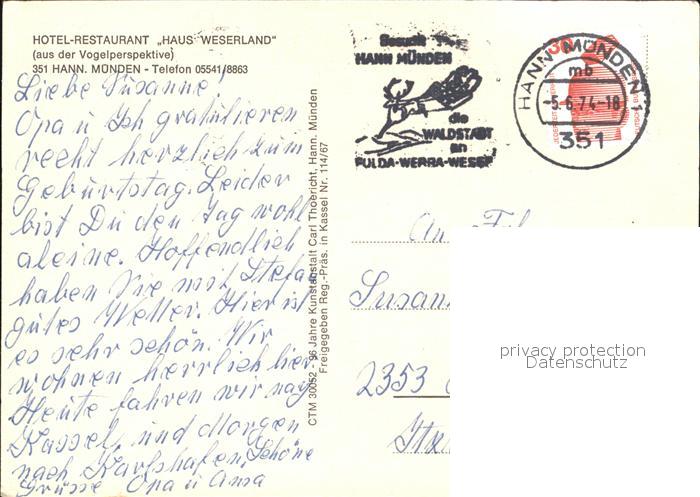 HOTEL-RESTAURANT „HAUS WESERLAND"
(aus der Vogelperspektive)
351 HANN. MÜNDEN - Telefon 05541/8863
Liebe Susanne!
Opa u Ich gratulieren
recht herzlich zum
Geburtstag. Leider
bist Du den Tag wohl
aleine. Hoffendlich
haben Sie mit Stefa
gutes Wetter. Hier ist
es sehr schön. Wir
wohnen herrlich hier.
Heute fahren wir nach
Kassel, und Morgen
nach Karlshafen. Schöne
Grüsse Opa u Oma
CTM 30052 - 96 Jahre Kunstanstalt Carl Thoericht, Hann. Münden
Freigegeben Reg.-Präs. in Kassel Nr. 114/67
Besucht
HANN MÜNDEN
die
WALDSTADT
an
FULDA-WERRA-WESER
HANN MÜNDEN 1
mb
-5.6.74-18
351
30
An
Susann
2353
privacy protection
Datenschutz